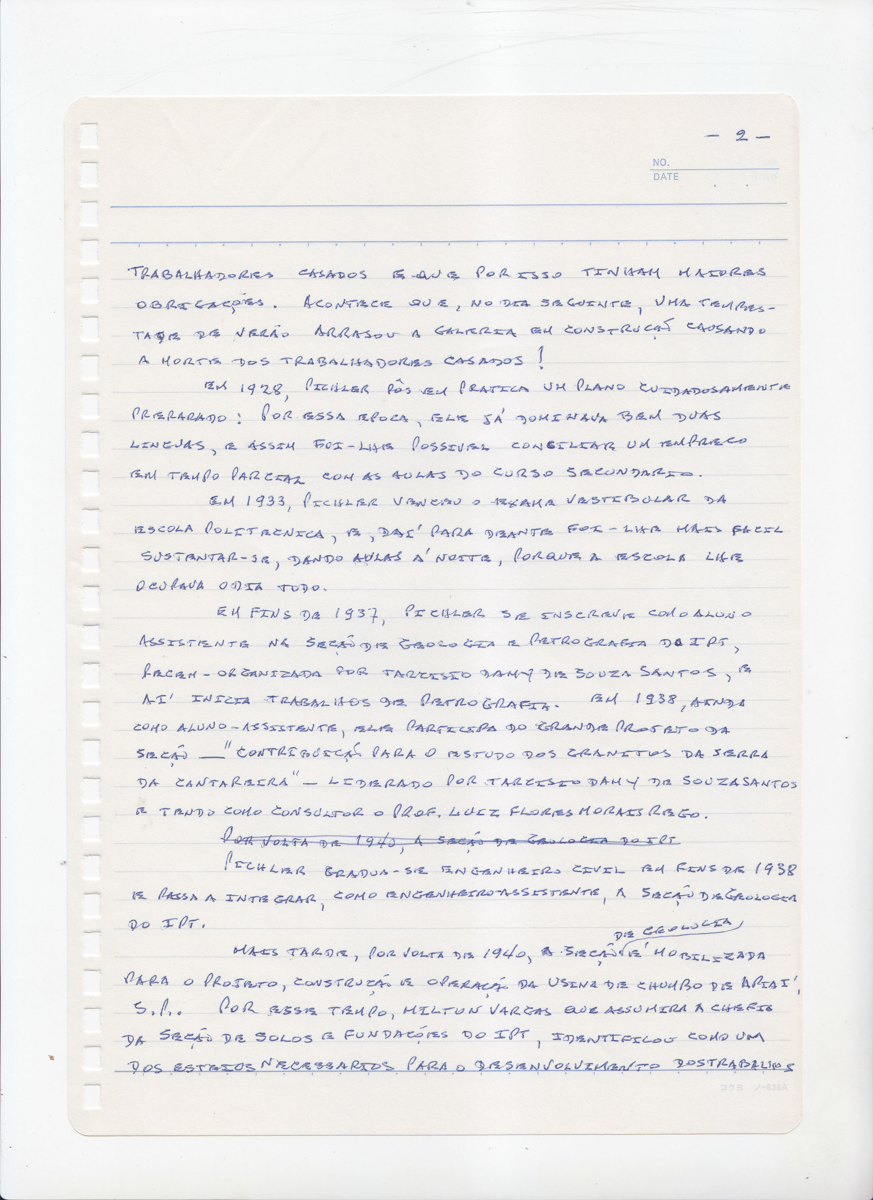 — 2 —
NO.
DATE
TRABALHADORES CASADOS E QUE POR ISSO TINHAM MAIORES
OBRIGAÇÕES. ACONTECE QUE, NO DIA SEGUINTE, UMA TEMPES-
TADE DE VERÃO ARRASOU A GALERIA EM CONSTRUÇÃO CAUSANDO
A MORTE DOS TRABALHADORES CASADOS!
EM 1928, PICHLER PÔS EM PRATICA UM PLANO CUIDADOSAMENTE
PREPARADO: POR ESSA EPOCA, ELE JÁ DOMINAVA BEM DUAS
LINGUAS, E ASSIM FOI-LHE POSSIVEL CONCILIAR UM EMPREGO
EM TEMPO PARCIAL COM AS AULAS DO CURSO SECUNDARIO.
EM 1933, PICHLER VENCEU O EXAME VESTIBULAR DA
ESCOLA POLITECNICA, E, DAÍ PARA DEANTE FOI-LHE MAIS FACIL
SUSTENTAR-SE, DANDO AULAS Á NOITE, PORQUE A ESCOLA LHE
OCUPAVA O DIA TODO.
EM FINS DE 1937, PICHLER SE INSCREVE COMO ALUNO
ASSISTENTE NA SEÇÃO DE GEOLOGIA E PETROGRAFIA DO IPT,
RECEM-ORGANIZADA POR TARCISIO DAMY DE SOUZA SANTOS, E
AÍ INICIA TRABALHOS DE PETROGRAFIA. EM 1938, AINDA
COMO ALUNO-ASSISTENTE, ELE PARTICIPA DO GRANDE PROJETO DA
SEÇÃO — "CONTRIBUIÇÃO PARA O ESTUDO DOS GRANITOS DA SERRA
DA CANTAREIRA" — LIDERADO POR TARCISIO DAMY DE SOUZA SANTOS
E TENDO COMO CONSULTOR O PROF. LUIZ FLORES MORAIS REGO.
POR VOLTA DE 1940, A SEÇÃO DE GEOLOGIA DO IPT
PICHLER GRADUA-SE ENGENHEIRO CIVIL EM FINS DE 1938
E PASSA A INTEGRAR, COMO ENGENHEIRO ASSISTENTE, A SEÇÃO DE GEOLOGIA
DO IPT.
DE GEOLOGIA
MAIS TARDE, POR VOLTA DE 1940, A SEÇÃO É MOBILIZADA
PARA O PROJETO, CONSTRUÇÃO E OPERAÇÃO DA USINA DE CHUMBO DE APIAÍ,
S.P.. POR ESSE TEMPO, MILTON VARGAS QUE ASSUMIRA A CHEFIA
DA SEÇÃO DE SOLOS E FUNDAÇÕES DO IPT, IDENTIFICOU COMO UM
DOS ESTEIOS NECESSARIOS PARA O DESENVOLVIMENTO DOS TRABALHOS